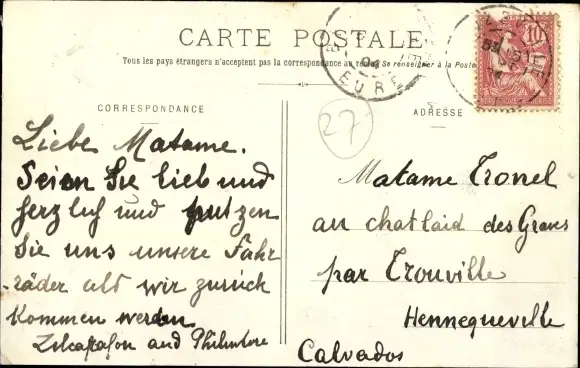 CARTE POSTALE
Tous les pays étrangers n'acceptent pas la correspondance au recto. Se renseigner à la Poste
CORRESPONDANCE
ADRESSE
10
EURE
27
Liebe Matame.
Seien Sie lieb und
herzlich und putzen
Sie uns unsere Fahr
-räder alt wir zurück
kommen werden
and
Matame Tronel
au chatlaid des Graves
par Trouville
Hennequeville
Calvados